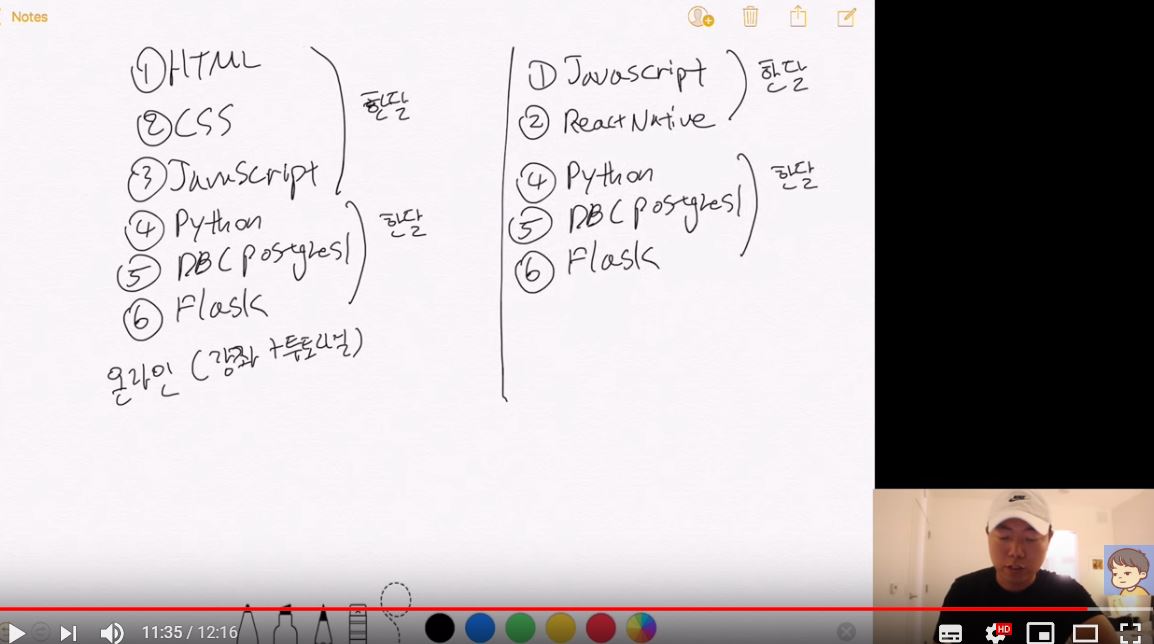 Notes
① HTML
② CSS
③ JavaScript
한달
④ Python
⑤ DB(postgresl
⑥ Flask
한달
온라인 (강좌 +튜토리얼)
① Javascript
② ReactNative
한달
④ Python
⑤ DB(postgresl
⑥ Flask
한달
11:35 / 12:16
HD